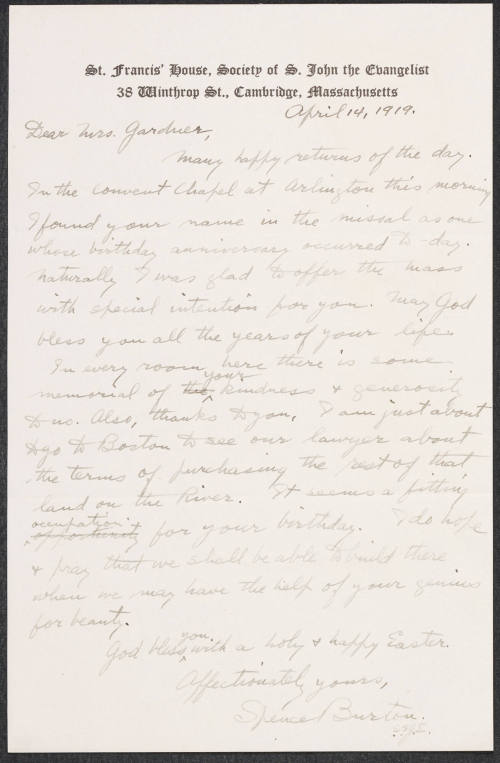 St. Francis' House, Society of S. John the Evangelist
38 Winthrop St., Cambridge, Massachusetts
April 14, 1919.
Dear Mrs. Gardner,
Many happy returns of the day.
In the convent chapel at Arlington this morning
I found your name in the missal as one
whose birthday anniversary occurred to-day.
Naturally I was glad to offer the mass
with special intention for you. May God
bless you all the years of your life.
In every room here there is some
your
memorial of the kindness & generosity
to us. Also, thanks to you, I am just about
to go to Boston to see our lawyer about
the terms of purchasing the rest of that
land on the River. It seems a fitting
occupation
opportunity for your birthday. I do hope
& pray that we shall be able to build there
when we may have the help of your genius
for beauty.
you
God bless with a holy & happy Easter.
Affectionately yours,
Spence Burton.
S.S.J.E.